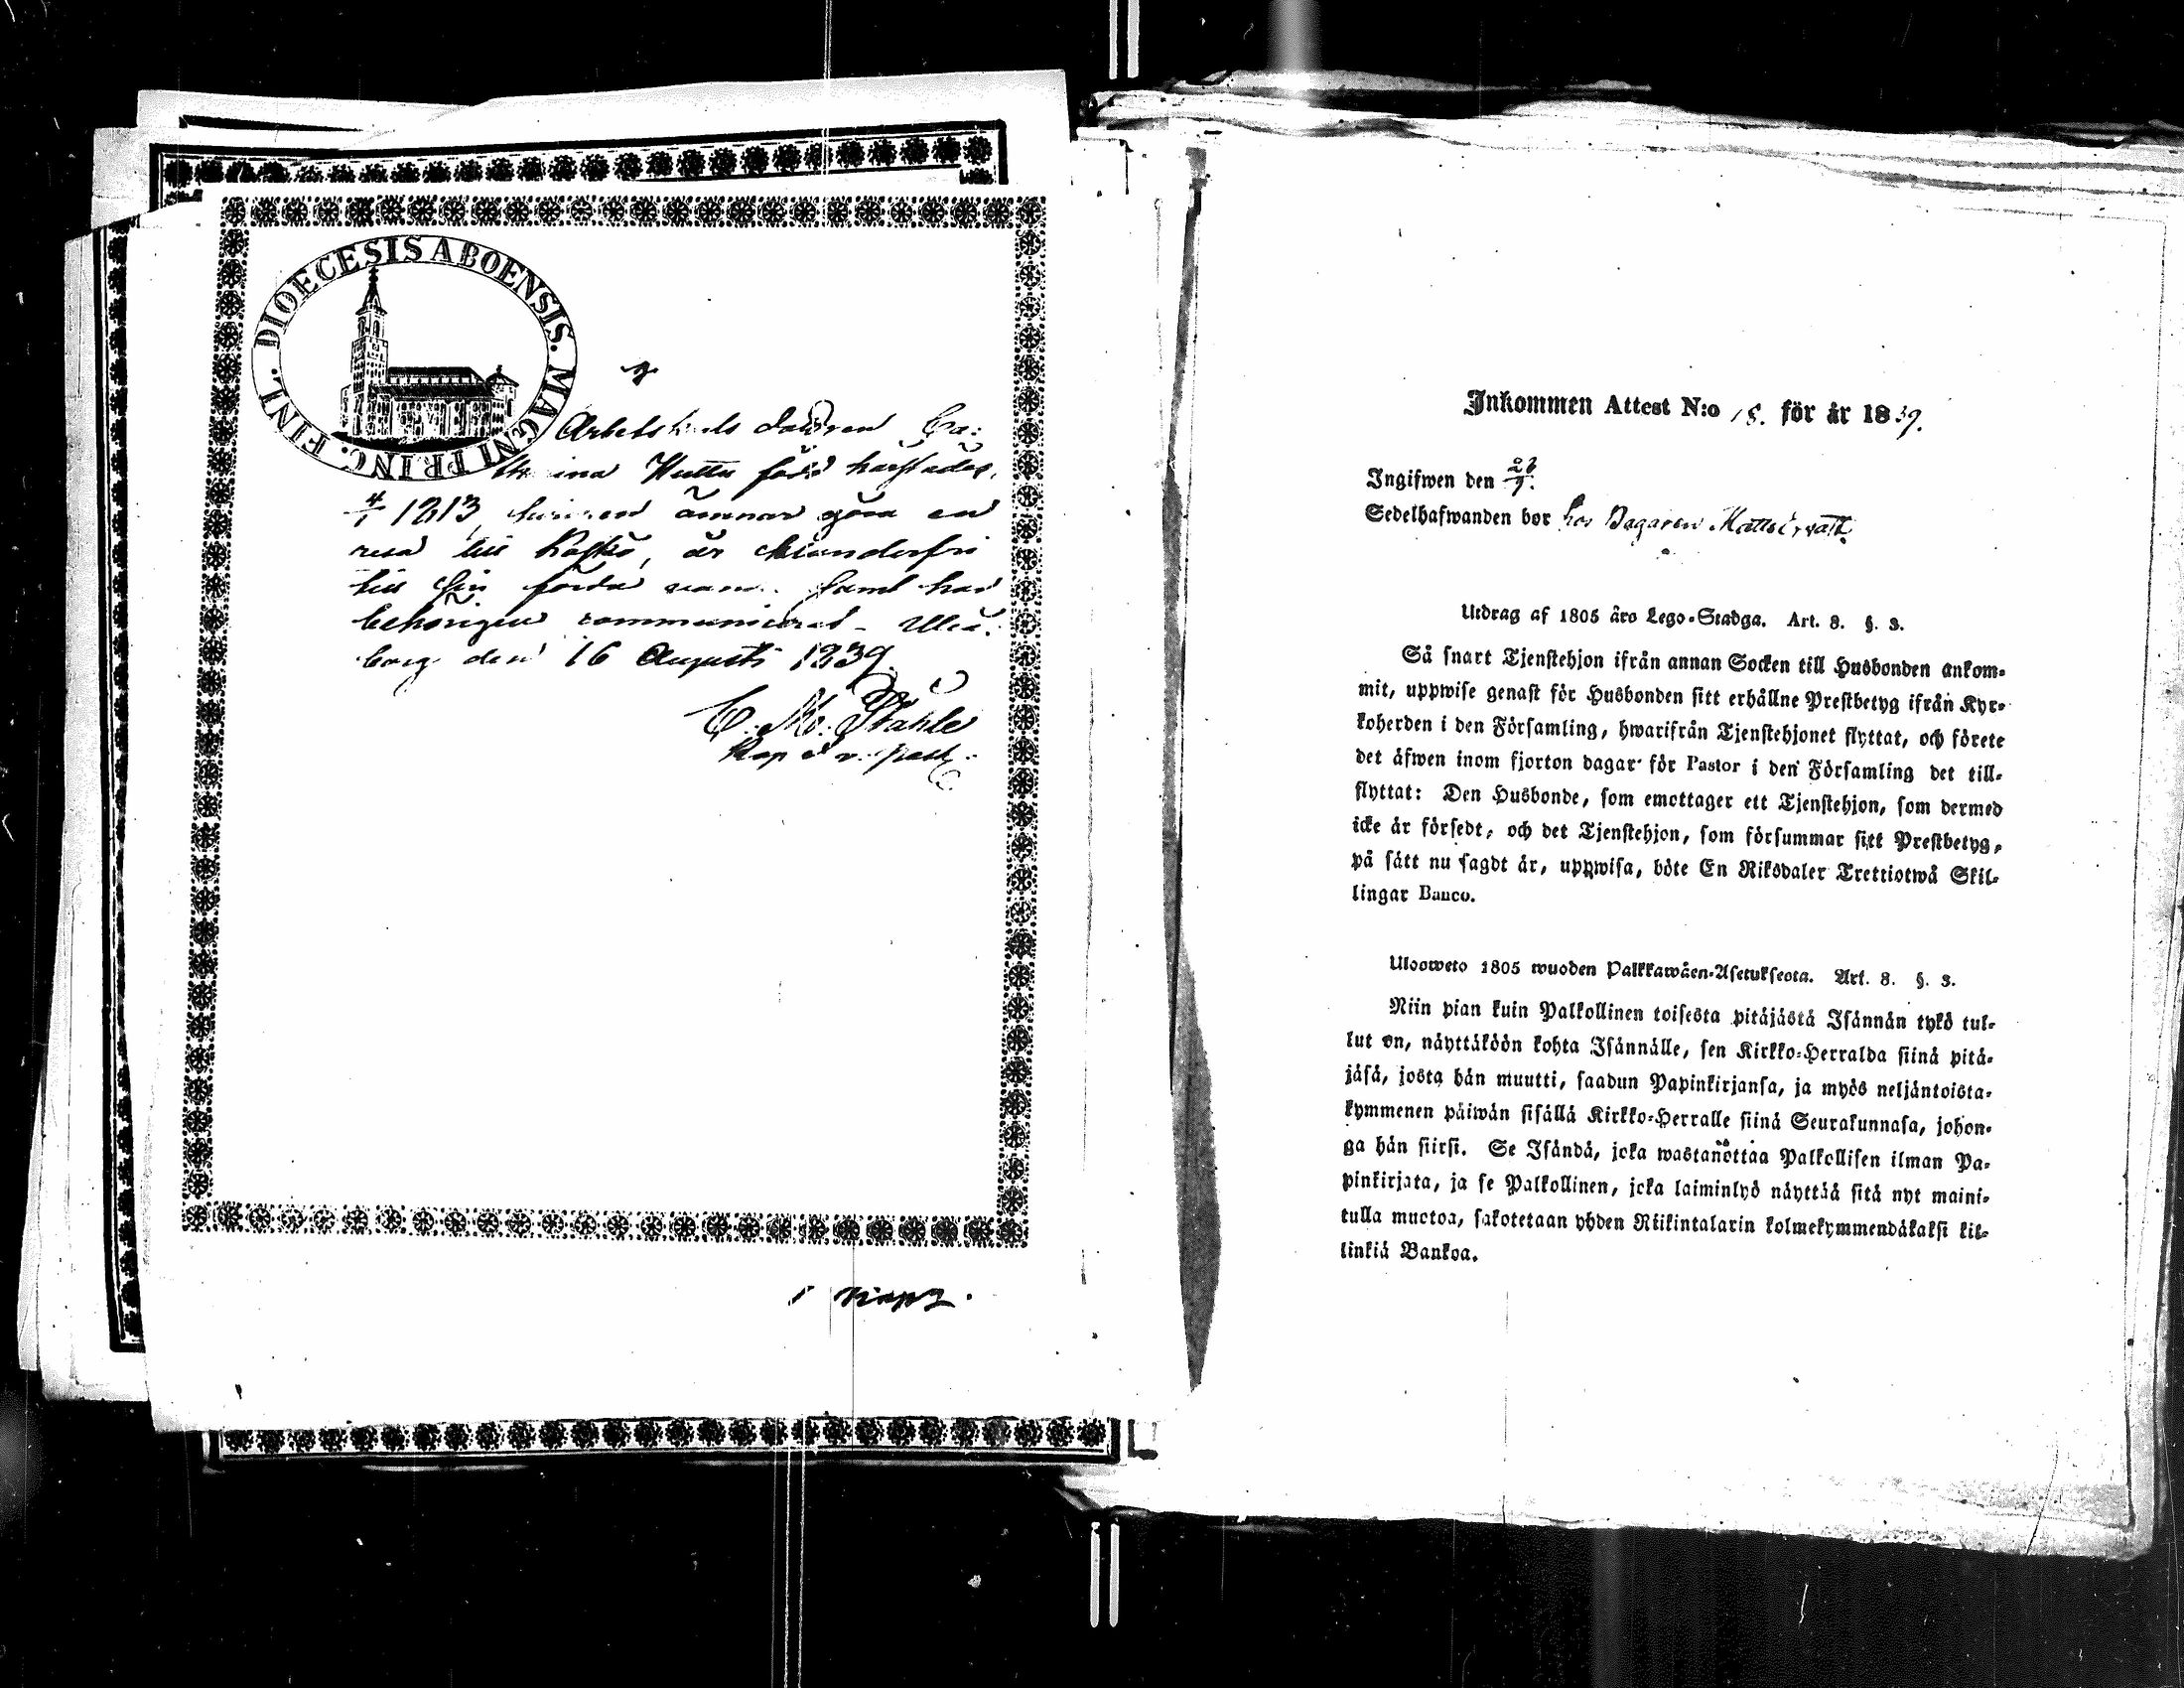 DIOECESIS ABOENSIS. MAGNI PRINC. FINL.
Arbetskarls dottren Ca:
tharina Hutta född härstädes,
4/1 1813, hwilken ämnar göra en
resa till Kaskö, är hinderfri
till sin förda wand. samt har
behörigen communicerat. Uleå:
borg den 16 Augusti 1839.
C. M. Ståhle
Kap o v. past.
1 Kop
Inkommen Attest N:o 18. för år 1839.
Ingifwen den 23/9.
Sedelhafwanden bor hos Bagaren
Utdrag af 1805 års Lego-Stadga. Art. 8. §. 3.
Så snart Tjenstehjon ifrån annan Socken till Husbonden ankom-
mit, uppwise genast för Husbonden sitt erhållne Prestbetyg ifrån Kyr-
koherden i den Församling, hwarifrån Tjenstehjonet flyttat, och förete
det äfwen inom fjorton dagar för Pastor i den Församling det till-
flyttat: Den Husbonde, som emottager ett Tjenstehjon, som dermed
icke är försedt, och det Tjenstehjon, som försummar sitt Prestbetyg,
på sätt nu sagdt är, uppwisa, böte En Riksdaler Trettiotwå Skil-
lingar Banco.
Ulosweto 1805 wuoden Palkkawäen-Asetuksesta. Art. 8. §. 3.
Niin pian kuin Palkollinen toisesta pitäjästä Isännän tykö tul-
lut on, näyttäköön kohta Isännälle, sen Kirkko-Herralda siinä pitä-
jäsä, josta hän muutti, saadun Papinkirjansa, ja myös neljäntoista-
kymmenen päiwän sisällä Kirkko-Herralle siinä Seurakunnasa, johon-
ga hän siirsi. Se Isändä, joka wastanottaa Palkollisen ilman Pa-
pinkirjata, ja se Palkollinen, joka laiminlyö näyttää sitä nyt maini-
tulla muotoa, sakotetaan yhden Riikintalarin kolmekymmendäkaksi kil-
linkiä Bankoa.